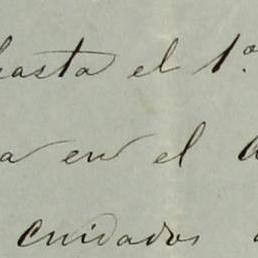 hasta el 1º
a en el
cuidados